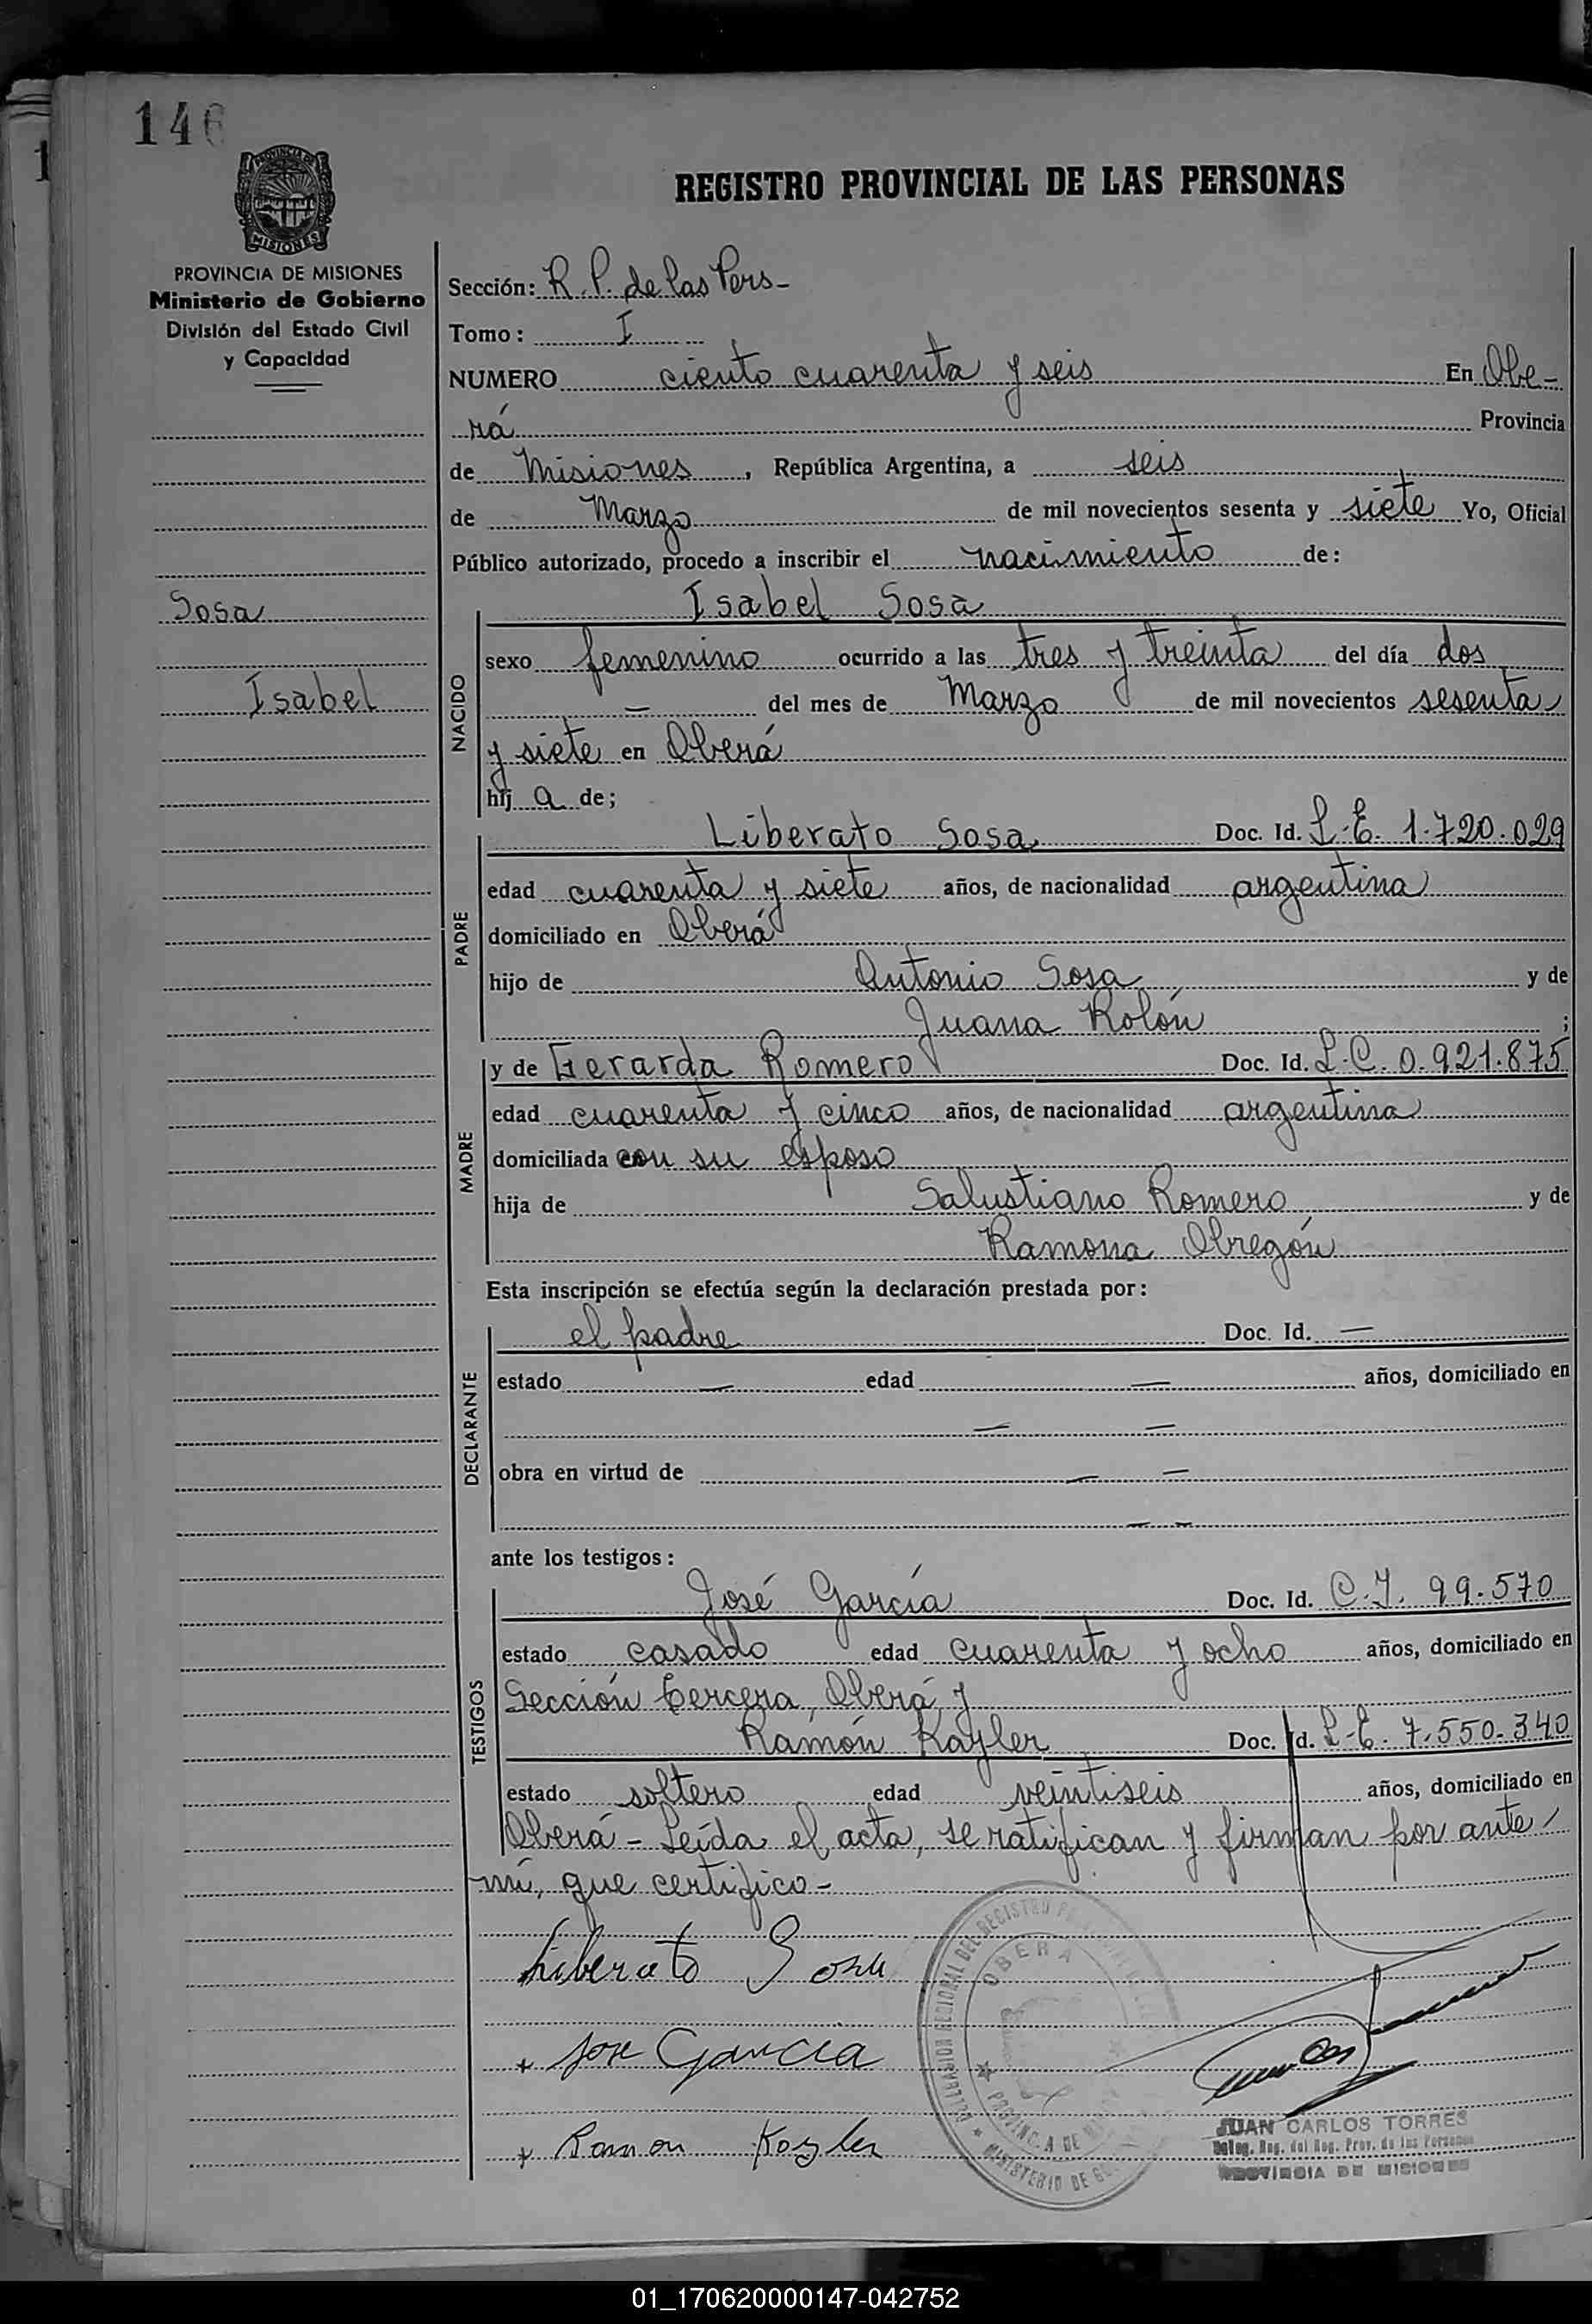 146
REGISTRO PROVINCIAL DE LAS PERSONAS
PROVINCIA DE MISIONES
Ministerio de Gobierno
División del Estado Civil
y Capacidad
Sección: R. P. de las Pers-
Tomo: I
NUMERO ciento cuarenta y seis En Obe-
rá Provincia
de Misiones, República Argentina, a seis
de Marzo de mil novecientos sesenta y siete Yo, Oficial
Público autorizado, procedo a inscribir el nacimiento de:
Sosa
Isabel
NACIDO
Isabel Sosa
sexo femenino ocurrido a las tres y treinta del día dos
— del mes de Marzo de mil novecientos sesenta
y siete en Oberá
hij a de;
PADRE
Liberato Sosa Doc. Id. L.E. 1.720.029
edad cuarenta y siete años, de nacionalidad argentina
domiciliado en Oberá
hijo de Antonio Sosa y de
Juana Rolón ;
MADRE
y de Gerarda Romero Doc. Id. L.C. 0.921.875
edad cuarenta y cinco años, de nacionalidad argentina
domiciliada con su esposo
hija de Salustiano Romero y de
Ramona Obregón
Esta inscripción se efectúa según la declaración prestada por:
DECLARANTE
el padre Doc. Id. —
estado — edad — años, domiciliado en
— —
obra en virtud de — —
— —
ante los testigos:
TESTIGOS
José García Doc. Id. C.I. 99.570
estado casado edad cuarenta y ocho años, domiciliado en
Sección tercera, Oberá y
Ramón Kayler Doc. Id. L.E. 7.550.340
estado soltero edad veintiseis años, domiciliado en
Oberá - Leída el acta, se ratifican y firman por ante
mí, que certifico-
Liberato Sosa
Jose Garcia
Ramon Kayler
DELEGACION REGIONAL DEL REGISTRO
OBERA
PROVINCIA DE
MINISTERIO DE
JUAN CARLOS TORRES
Deleg. Reg. del Reg. Prov. de las Personas
PROVINCIA DE MISIONES
01_170620000147-042752